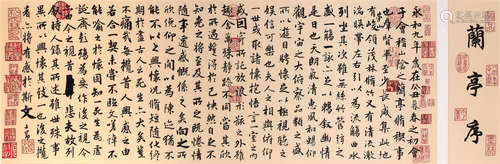 蘭亭序
永和九年歲在癸丑暮春之初會
于會稽山陰之蘭亭脩禊事
也羣賢畢至少長咸集此地
有崇山峻領茂林脩竹又有清流激
湍暎帶左右引以為流觴曲水
列坐其次雖無絲竹管弦之
盛一觴一詠亦足以暢敘幽情
是日也天朗氣清惠風和暢仰
觀宇宙之大俯察品類之盛
所以遊目騁懷足以極視聽之
娛信可樂也夫人之相與俯仰
一世或取諸懷抱悟言一室之內
或因寄所託放浪形骸之外雖
趣舍萬殊靜躁不同當其欣
於所遇蹔得於己怏然自足不
知老之將至及其所之既惓情
隨事遷感慨係之矣向之所
欣俛仰之閒以為陳迹猶不
能不以之興懷況脩短隨化終
期於盡古人云死生亦大矣豈
不痛哉每攬昔人興感之由
若合一契未嘗不臨文嗟悼不
能喻之於懷固知一死生為虛
誕齊彭殤為妄作後之視今
亦由今之視昔悲夫故列
敘時人錄其所述雖世殊事
異所以興懷其致一也後之攬
者亦將有感於斯文